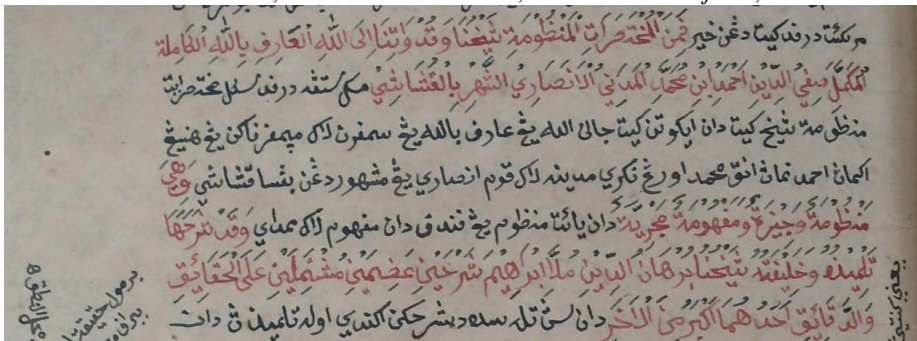 مريكئت درفد كيت دڠن خير فَمِنَ الْمُخْتَصَرَاتِ الْمَنْظُومَةِ شَيْخُنَا وَقُدْوَتُنَا إِلَى اللهِ الْعَارِفِ بِاللهِ الْكَامِلُ
الْمُكَمِّلُ صَفِيُّ الدِّينِ أَحْمَدُ ابْنُ مُحَمَّدٍ الْمَدَنِيُّ الْأَنْصَارِيُّ الشَّهِيرُ بِالْقُشَاشِيِّ مك ستڠه درفد سكل مختصرات
منظومة شيخ كيت دان ايكوتن كيت جالن الله يڠ عارف بالله يڠ سمفرن لاك ميمفرناكن يڠ هنيڠ
اكمان احمد نمان انق محمد اورڠ نكري مدينه لاك قوم انصاري يڠ مشهور دڠن بڠسا قشاشي وَهِيَ
مَنْظُومَةٌ وَجِيزَةٌ وَمَفْهُومَةٌ مُجْزِيَةٌ دان يائت منظوم يڠ فندق دان مفهوم لاك ممداي وَقَدْ شَرَحَهَا
تِلْمِيذُهُ وَخَلِيفَتُهُ شَيْخُنَا بُرْهَانُ الدِّينِ مُلَّا إِبْرَاهِيمُ شَرْحَيْنِ عَظِيمَيْنِ مُشْتَمِلَيْنِ عَلَى الْحَقَائِقِ
وَالدَّقَائِقِ أَحَدُهُمَا أَكْبَرُ مِنَ الْآخَرِ دان سڽ تله سده دشرحكن اكندي اوله تلميذڽ دان